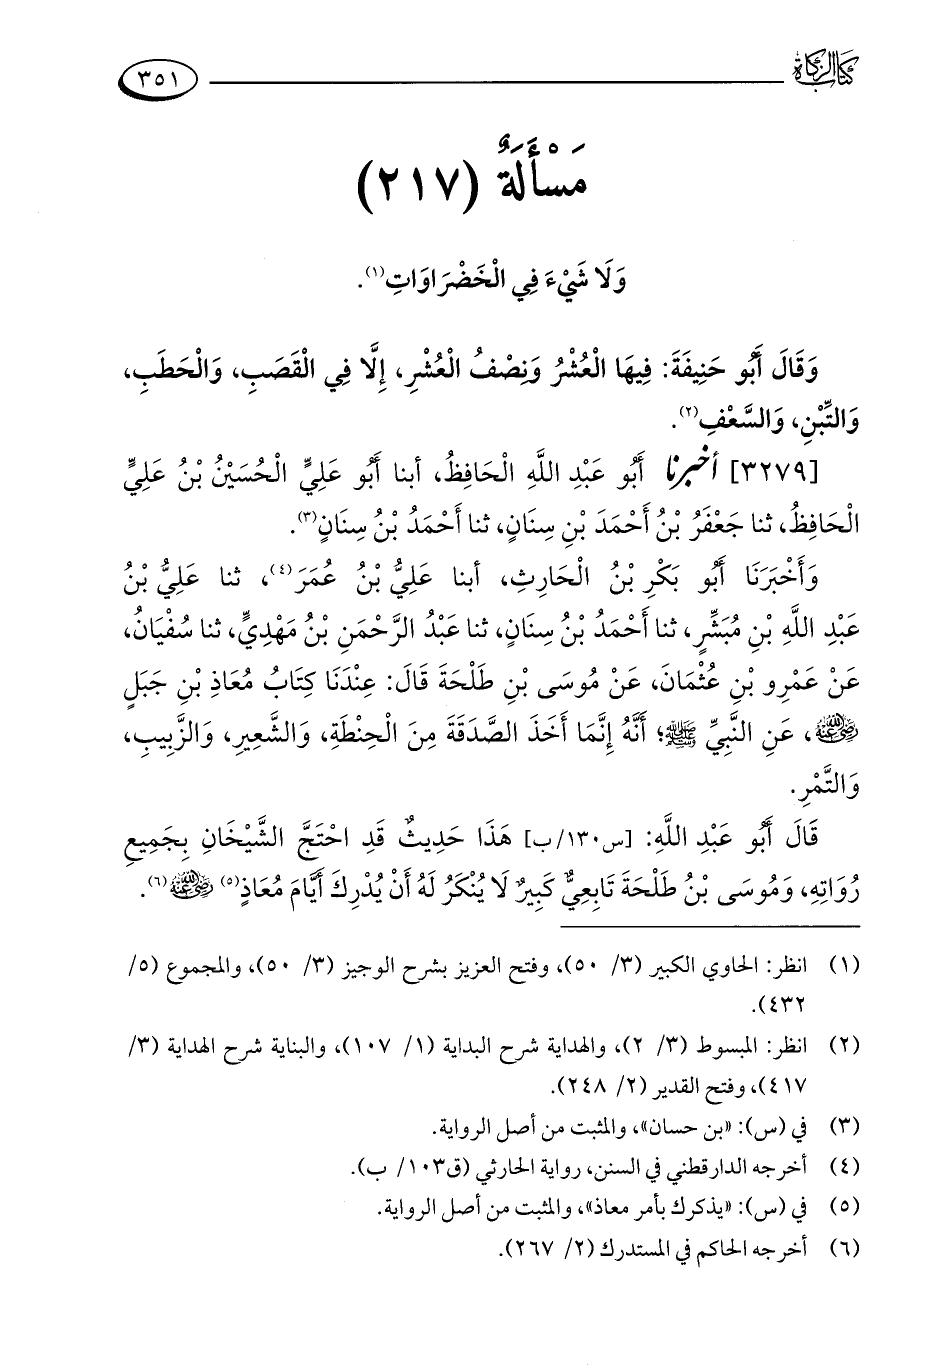 كتاب الزكاة
٣٥١
مَسْأَلَةٌ (٢١٧)
وَلَا شَيْءَ فِي الْخَضْرَاوَاتِ(١).
وَقَالَ أَبُو حَنِيفَةَ: فِيهَا الْعُشْرُ وَنِصْفُ الْعُشْرِ، إِلَّا فِي الْقَصَبِ، وَالْحَطَبِ،
وَالتِّبْنِ، وَالسَّعْفِ(٢).
[٣٢٧٩] أخبرنا أَبُو عَبْدِ اللَّهِ الْحَافِظُ، أبنا أَبُو عَلِيٍّ الْحُسَيْنُ بْنُ عَلِيٍّ
الْحَافِظُ، ثنا جَعْفَرُ بْنُ أَحْمَدَ بْنِ سِنَانٍ، ثنا أَحْمَدُ بْنُ سِنَانٍ(٣).
وَأَخْبَرَنَا أَبُو بَكْرِ بْنُ الْحَارِثِ، أبنا عَلِيُّ بْنُ عُمَرَ(٤)، ثنا عَلِيُّ بْنُ
عَبْدِ اللَّهِ بْنِ مُبَشِّرٍ، ثنا أَحْمَدُ بْنُ سِنَانٍ، ثنا عَبْدُ الرَّحْمَنِ بْنُ مَهْدِيٍّ، ثنا سُفْيَانُ،
عَنْ عَمْرِو بْنِ عُثْمَانَ، عَنْ مُوسَى بْنِ طَلْحَةَ قَالَ: عِنْدَنَا كِتَابُ مُعَاذِ بْنِ جَبَلٍ
رضي الله عنه، عَنِ النَّبِيِّ ﷺ؛ أَنَّهُ إِنَّمَا أَخَذَ الصَّدَقَةَ مِنَ الْحِنْطَةِ، وَالشَّعِيرِ، وَالزَّبِيبِ،
وَالتَّمْرِ.
قَالَ أَبُو عَبْدِ اللَّهِ: [س١٣٠/ب] هَذَا حَدِيثٌ قَدِ احْتَجَّ الشَّيْخَانِ بِجَمِيعِ
رُوَاتِهِ، وَمُوسَى بْنُ طَلْحَةَ تَابِعِيٌّ كَبِيرٌ لَا يُنْكَرُ لَهُ أَنْ يُدْرِكَ أَيَّامَ مُعَاذٍ(٥) رضي الله عنه(٦).
(١) انظر: الحاوي الكبير (٣/ ٥٠)، وفتح العزيز بشرح الوجيز (٣/ ٥٠)، والمجموع (٥/
٤٣٢).
(٢) انظر: المبسوط (٣/ ٢)، والهداية شرح البداية (١/ ١٠٧)، والبناية شرح الهداية (٣/
٤١٧)، وفتح القدير (٢/ ٢٤٨).
(٣) في (س): «بن حسان»، والمثبت من أصل الرواية.
(٤) أخرجه الدارقطني في السنن، رواية الحارثي (ق١٠٣/ ب).
(٥) في (س): «يذكرك بأمر معاذ»، والمثبت من أصل الرواية.
(٦) أخرجه الحاكم في المستدرك (٢/ ٢٦٧).